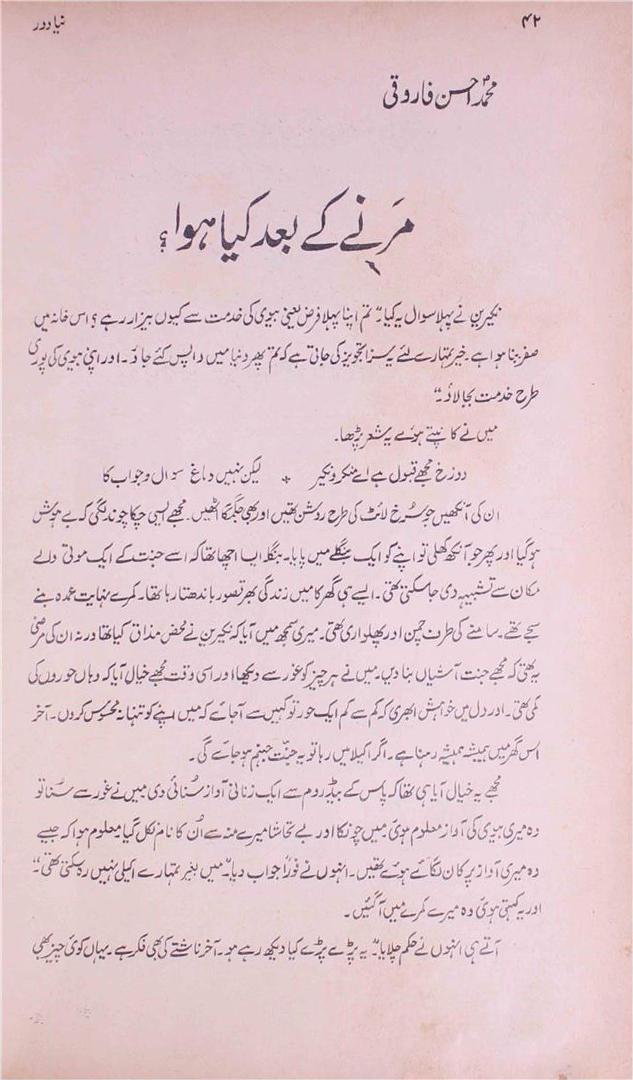 ۴۲
نیا دور
محمد احسن فاروقی
مرنے کے بعد کیا ہوا؟
نکیرین نے پہلا سوال یہ کیا۔ "تم اپنا پہلا فرض یعنی بیوی کی خدمت سے کیوں بیزار رہے؟ اس خانہ میں
صفر بنا ہوا ہے۔ خیر تمہارے لئے یہ سزا تجویز کی جاتی ہے کہ تم پھر دنیا میں واپس کئے جاؤ۔ اور اپنی بیوی کی پوری
طرح خدمت بجا لاؤ۔"
میں نے کانپتے ہوئے یہ شعر پڑھا۔
دوزخ مجھے قبول ہے اے منکر و نکیر * لیکن نہیں دماغ سوال و جواب کا
ان کی آنکھیں جو سرخ لائٹ کی طرح روشن تھیں اور بھی جگمگا اٹھیں۔ مجھے ایسی چکا چوند لگی کہ بے ہوش
ہو گیا اور پھر جو آنکھ کھلی تو اپنے کو ایک بنگلے میں پایا۔ بنگلہ ایسا اچھا تھا کہ اسے جنت کے ایک موتی والے
مکان سے تشبیہہ دی جا سکتی تھی۔ ایسے ہی گھر کا میں زندگی بھر تصور باندھتا رہا تھا۔ کمرے نہایت عمدہ بنے
سجے تھے۔ سامنے کی طرف چمن اور پھلواری تھی۔ میری سمجھ میں آیا کہ نکیرین نے محض مذاق کیا تھا ورنہ ان کی مرضی
یہ تھی کہ مجھے جنت آشیاں بنا دیں۔ میں نے ہر چیز کو غور سے دیکھا اور اسی وقت مجھے خیال آیا کہ وہاں حوروں کی
کمی تھی۔ اور دل میں خواہش ابھری کہ کم سے کم ایک حور تو کہیں سے آ جائے کہ میں اپنے کو تنہا نہ محسوس کروں۔ آخر
اس گھر میں ہمیشہ ہمیشہ رہنا ہے۔ اگر اکیلا میں رہا تو یہ جنت جہنم ہو جائے گی۔
مجھے یہ خیال آیا ہی تھا کہ پاس کے بیڈ روم سے ایک زنانی آواز سنائی دی میں نے غور سے سنا تو
وہ میری بیوی کی آواز معلوم ہوئی میں چونکا اور بے تحاشا میرے منہ سے ان کا نام نکل گیا معلوم ہوا کہ جیسے
وہ میری آواز پر کان لگائے ہوئے تھیں۔ انہوں نے فوراً جواب دیا۔ "میں بغیر تمہارے اکیلی نہیں رہ سکتی تھی"
اور یہ کہتی ہوئی وہ میرے کمرے میں آ گئیں۔
آتے ہی انہوں نے حکم چلایا۔ "یہ پڑے پڑے کیا دیکھ رہے ہو۔ آخر ناشتے کی بھی فکر ہے۔ یہاں کوئی چیز بھی